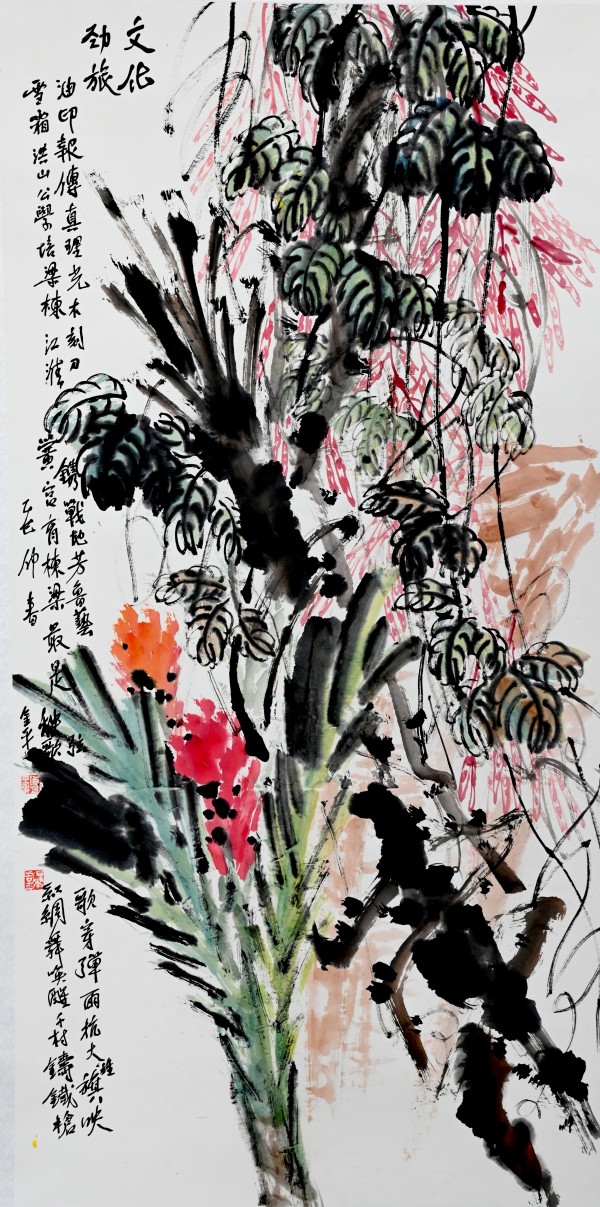 文化
劲旅
油印報傳真理光木刻刀鐫戰地芳魯藝弦歌穿彈雨抗大旗映
雪霜洪山公學培梁棟江淮黌宮育棟梁最是秧歌紅綢舞喚醒千村鑄鐵槍
乙巳仲春